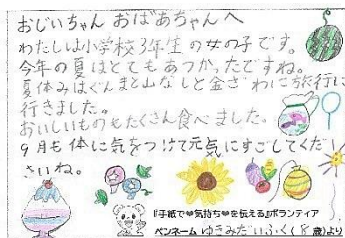 おじいちゃん おばあちゃんへ
わたしは小学校3年生の女の子です。
今年の夏はとてもあつかったですね。
夏休みはぐんまと山なしと金さわに旅行に
行きました。
おいしいものもたくさん食べました。
9月も体に気をつけて元気にすごしてくだ
さいね。
『手紙で❤気持ち❤を伝える』ボランティア
ペンネーム ゆきみだいふく(8歳)より